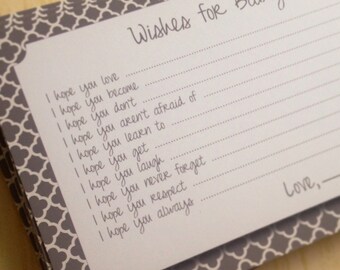 Wishes for Baby
I hope you love
I hope you become
I hope you don't
I hope you aren't afraid of
I hope you learn to
I hope you get
I hope you laugh
I hope you never forget
I hope you respect
I hope you always
Love,